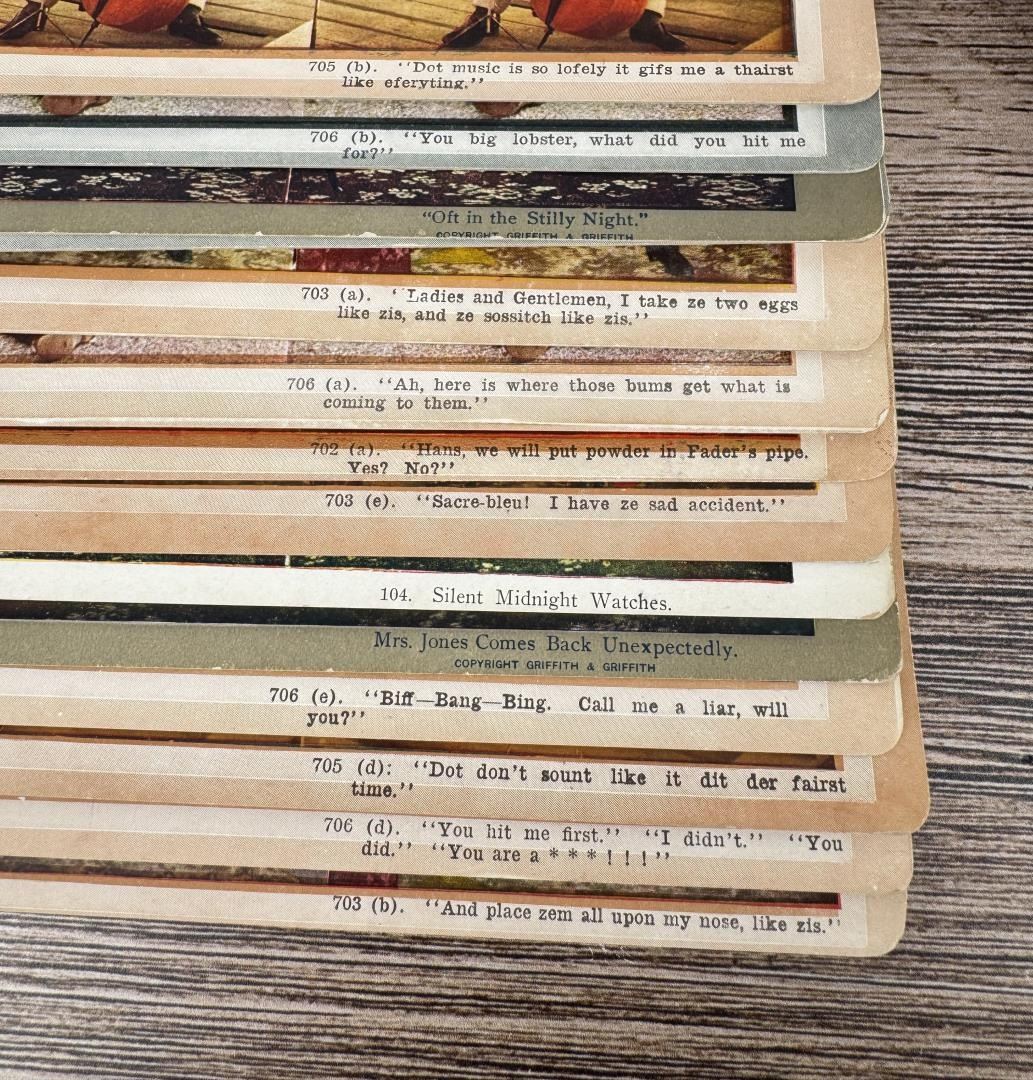 705 (b). “Dot music is so lofely it gifs me a thairst
like eferyting.”
706 (b). “You big lobster, what did you hit me
for?”
“Oft in the Stilly Night.”
COPYRIGHT GRIFFITH & GRIFFITH
703 (a). “Ladies and Gentlemen, I take ze two eggs
like zis, and ze sossitch like zis.”
706 (a). “Ah, here is where those bums get what is
coming to them.”
702 (a). “Hans, we will put powder in Fader’s pipe.
Yes? No?”
703 (e). “Sacre-bleu! I have ze sad accident.”
104. Silent Midnight Watches.
Mrs. Jones Comes Back Unexpectedly.
COPYRIGHT GRIFFITH & GRIFFITH
706 (e). “Biff—Bang—Bing. Call me a liar, will
you?”
705 (d): “Dot don’t sount like it dit der fairst
time.”
706 (d). “You hit me first.” “I didn’t.” “You
did.” “You are a * * * ! ! ! ”
703 (b). “And place zem all upon my nose, like zis.”